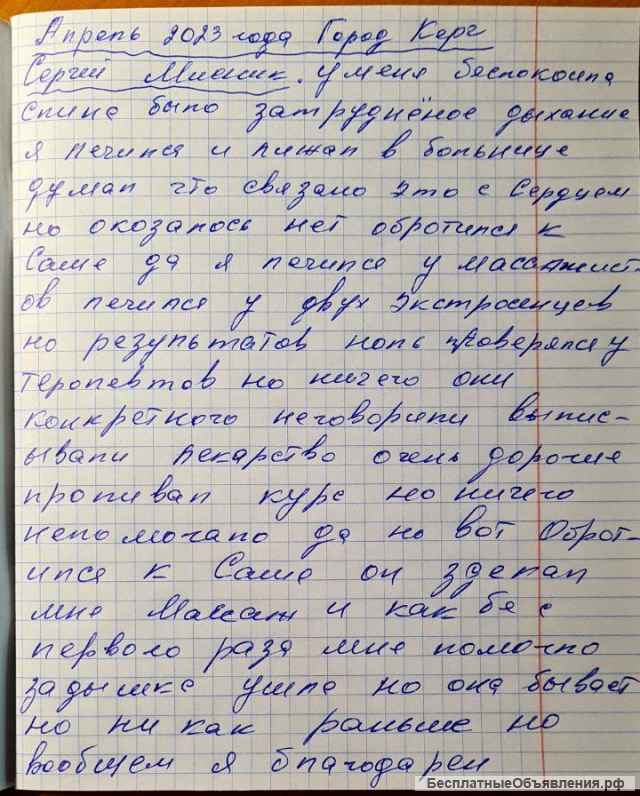 Апрель 2023 года Город Керч
Сергей Мисник. у меня беспокоила
спина было затруднёное дыхание
я лечился и лижал в больнице
думал что связано это с Сердцем
но окозалось нет обротился к
Саше да я лечился у массажист-
ов лечился у двух экстросенцев
но результатов ноль проверялся у
теропевтов но ничего они
конкретного неговорили выпис-
ывали лекарство очень дорогие
пропивал курс но ничего
непомогало да но вот Оброт-
ился к Саше он зделал
мне Массаж и как бе с
первого раза мне помогло
задышка ушла но она бывает
но ни как раньше но
вообщем я благодарен
БесплатныеОбъявления.рф